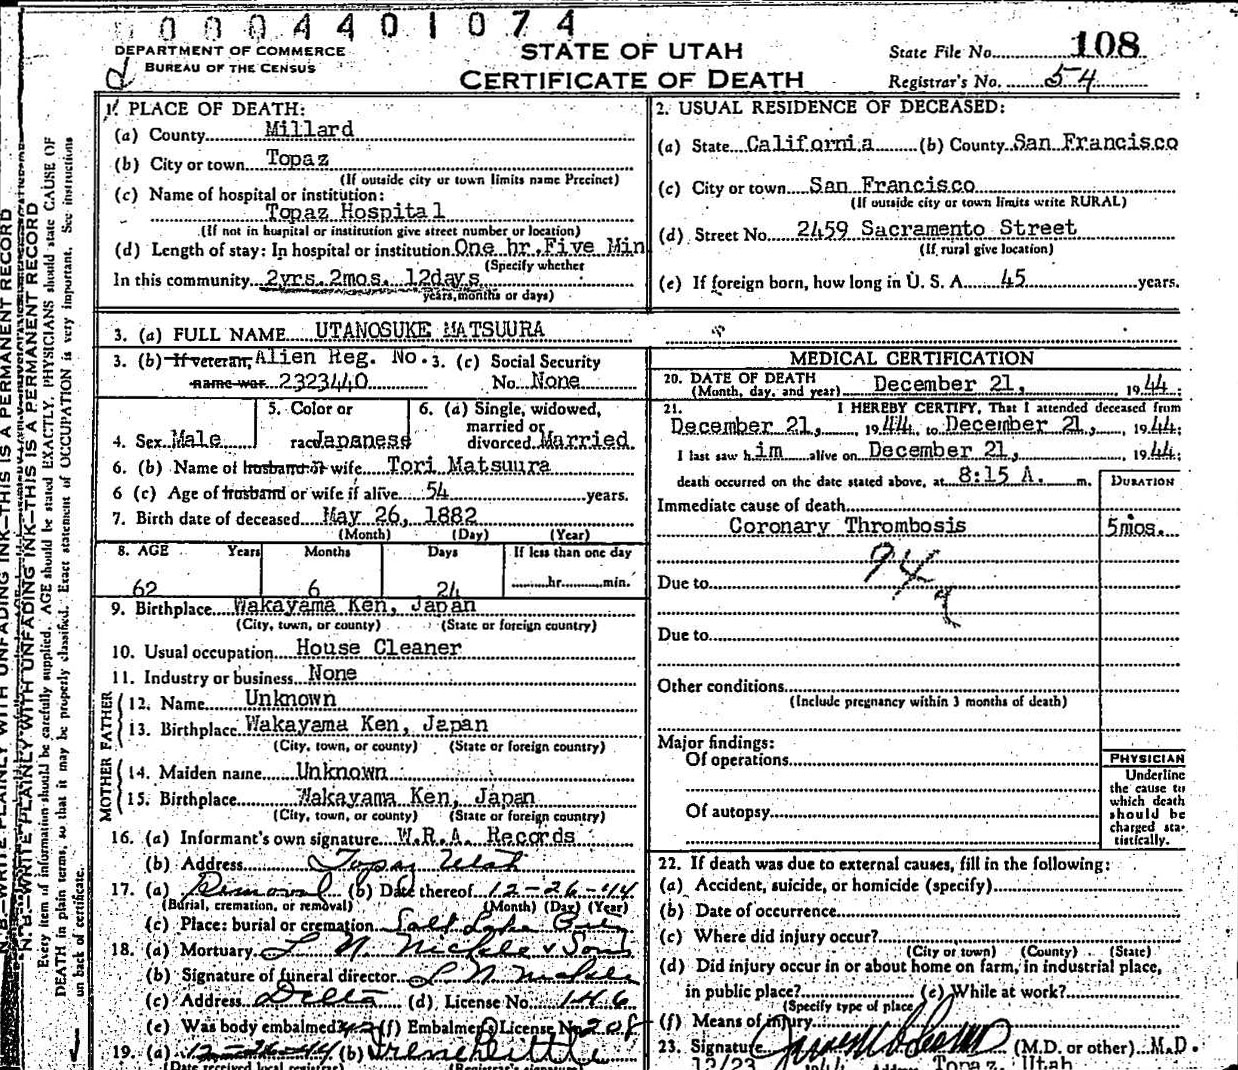 0004401074
DEPARTMENT OF COMMERCE
BUREAU OF THE CENSUS
STATE OF UTAH
CERTIFICATE OF DEATH
State File No. 108
Registrar's No. 54
1. PLACE OF DEATH:
(a) County Millard
(b) City or town Topaz
(If outside city or town limits name Precinct)
(c) Name of hospital or institution:
Topaz Hospital
(If not in hospital or institution give street number or location)
(d) Length of stay: In hospital or institution One hr. Five Min
(Specify whether
In this community 2yrs. 2mos. 12days
years, months or days)
2. USUAL RESIDENCE OF DECEASED:
(a) State California (b) County San Francisco
(c) City or town San Francisco
(If outside city or town limits write RURAL)
(d) Street No. 2459 Sacramento Street
(If rural give location)
(e) If foreign born, how long in U. S. A. 45 years.
3. (a) FULL NAME UTANOSUKE MATSUURA
3. (b) If veteran, Alien Reg. No. 3. (c) Social Security
name war 2323440 No. None
4. Sex Male
5. Color or
race Japaness
6. (a) Single, widowed,
married or
divorced Married
6. (b) Name of husband or wife Tori Matsuura
6 (c) Age of husband or wife if alive 54 years.
7. Birth date of deceased May 26, 1882
(Month) (Day) (Year)
8. AGE Years Months Days If less than one day
62 6 24 hr. min.
9. Birthplace Wakayama Ken, Japan
(City, town, or county) (State or foreign country)
10. Usual occupation House Cleaner
11. Industry or business None
FATHER
12. Name Unknown
13. Birthplace Wakayama Ken, Japan
(City, town, or county) (State or foreign country)
MOTHER
14. Maiden name Unknown
15. Birthplace Wakayama Ken, Japan
(City, town, or county) (State or foreign country)
16. (a) Informant's own signature W.R.A. Records
(b) Address Topaz Utah
17. (a) Removal (b) Date thereof 12-26-44
(Burial, cremation, or removal) (Month) (Day) (Year)
(c) Place: burial or cremation Salt Lake City
18. (a) Mortuary L. N. Nickle & Sons
(b) Signature of funeral director L N Nickle
(c) Address Delta (d) License No. 146
(e) Was body embalmed? (f) Embalmers License No. 208
19. (a) 12-26-44 (b)
(Date received local registrar) (Registrar's signature)
MEDICAL CERTIFICATION
20. DATE OF DEATH
(Month, day, and year) December 21, 1944;
21. I HEREBY CERTIFY, That I attended deceased from
December 21, 1944, to December 21, 1944;
I last saw him alive on December 21, 1944;
death occurred on the date stated above, at 8:15 A. m.
DURATION
Immediate cause of death
Coronary Thrombosis 5mos.
94a
Due to
Due to
Other conditions
(Include pregnancy within 3 months of death)
Major findings:
Of operations
Of autopsy
PHYSICIAN
Underline
the cause to
which death
should be
charged sta-
tistically.
22. If death was due to external causes, fill in the following:
(a) Accident, suicide, or homicide (specify)
(b) Date of occurrence
(c) Where did injury occur?
(City or town) (County) (State)
(d) Did injury occur in or about home on farm, in industrial place,
in public place? (e) While at work?
(Specify type of place
(f) Means of injury
23. Signature (M.D. or other) M.D.
12/23 1944 Address Topaz, Utah
N. B.—WRITE PLAINLY WITH UNFADING INK—THIS IS A PERMANENT RECORD
N. B.—WRITE PLAINLY WITH UNFADING INK—THIS IS A PERMANENT RECORD
Every item of information should be carefully supplied. AGE should be stated EXACTLY. PHYSICIANS should state CAUSE OF
DEATH in plain terms, so that it may be properly classified. Exact statement of OCCUPATION is very important. See instructions
on back of certificate.